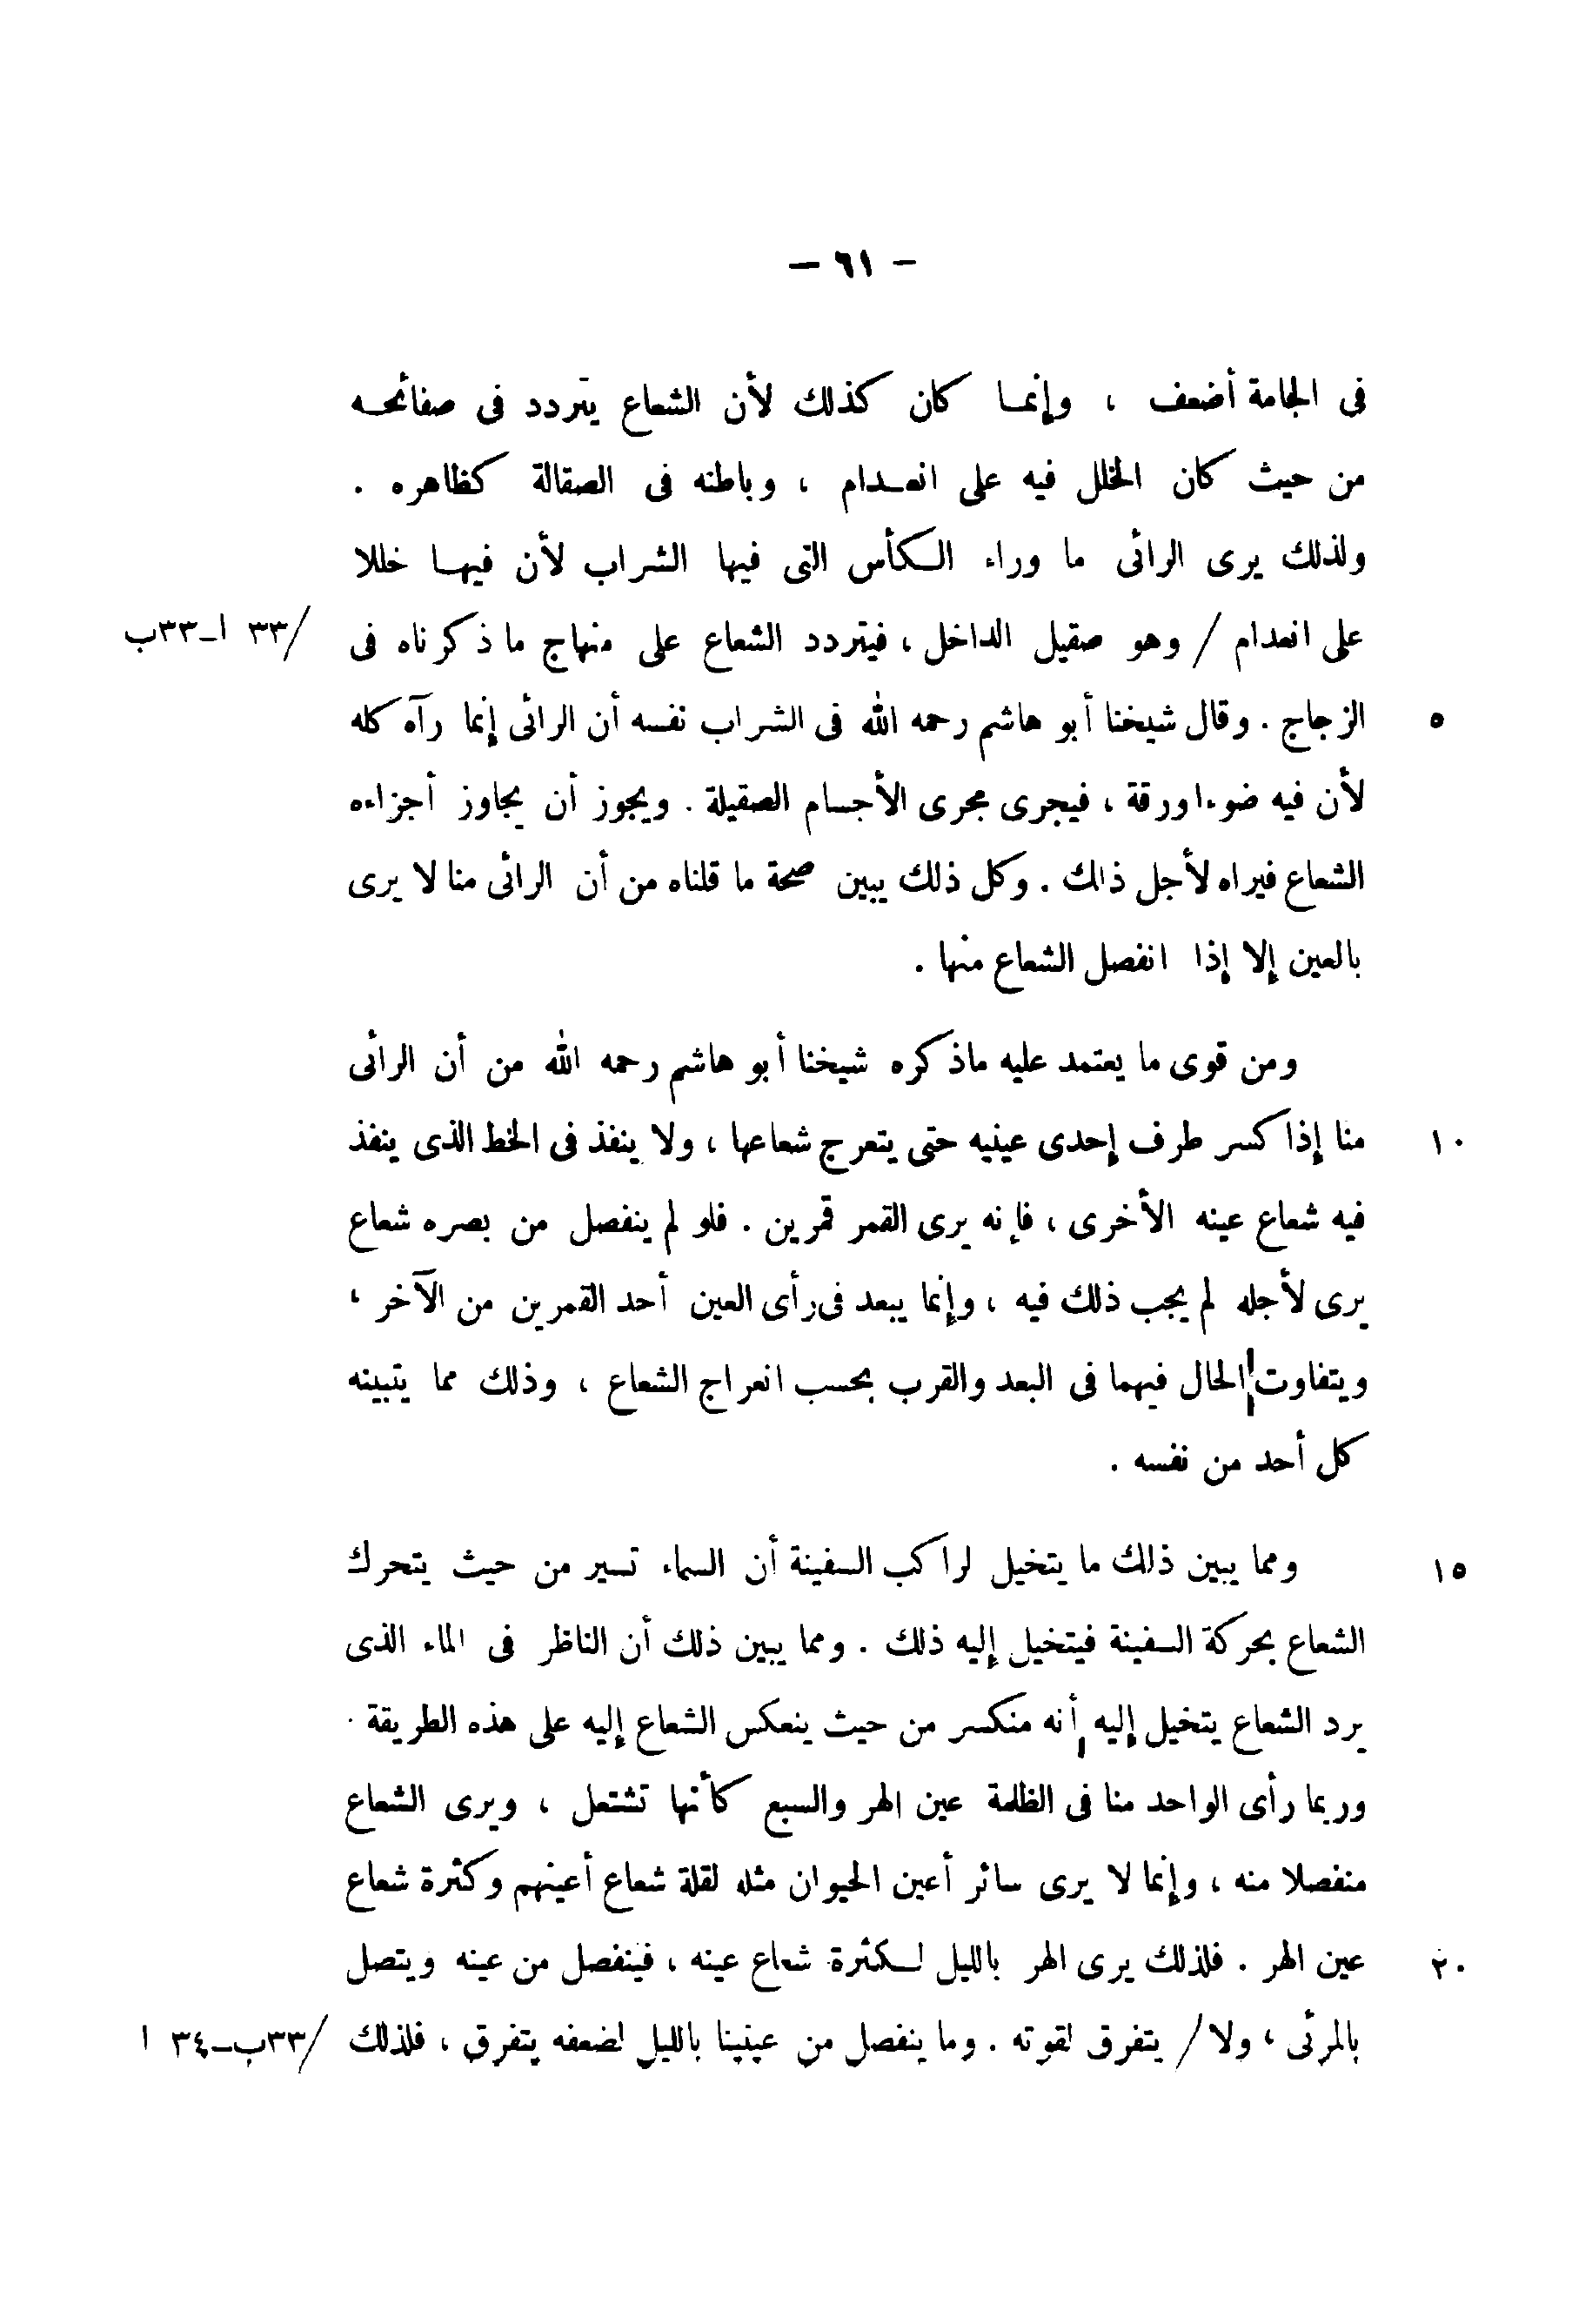 — ٦١ —
فى الجامة أضعف ، وإنما كان كذلك لأن الشعاع يتردد فى صفائحه
من حيث كان الخلل فيه على انعدام ، وباطنه فى الصقالة كظاهره .
ولذلك يرى الرائى ما وراء الكأس التى فيها الشراب لأن فيها خللا
على انعدام / وهو صقيل الداخل ، فيتردد الشعاع على منهاج ما ذكرناه فى /٣٣ ا-٣٣ب
٥ الزجاج . وقال شيخنا أبو هاشم رحمه الله فى الشراب نفسه أن الرائى إنما رآه كله
لأن فيه ضوءا ورقة ، فيجرى مجرى الأجسام الصقيلة . ويجوز أن يجاوز أجزاءه
الشعاع فيراه لأجل ذلك . وكل ذلك يبين صحة ما قلناه من أن الرائى منا لا يرى
بالعين إلا إذا انفصل الشعاع منها .
ومن قوى ما يعتمد عليه ماذكره شيخنا أبو هاشم رحمه الله من أن الرائى
١٠ منا إذا كسر طرف إحدى عينيه حتى يتعرج شعاعها ، ولا ينفذ فى الخط الذى ينفذ
فيه شعاع عينه الأخرى ، فإنه يرى القمر قمرين . فلو لم ينفصل من بصره شعاع
يرى لأجله لم يجب ذلك فيه ، وإنما يبعد فى رأى العين أحد القمرين من الآخر ،
ويتفاوت الحال فيهما فى البعد والقرب بحسب انعراج الشعاع ، وذلك مما يتبينه
كل أحد من نفسه .
١٥ ومما يبين ذلك ما يتخيل لراكب السفينة أن السماء تسير من حيث يتحرك
الشعاع بحركة السفينة فيتخيل إليه ذلك . ومما يبين ذلك أن الناظر فى الماء الذى
يرد الشعاع يتخيل إليه أنه منكسر من حيث ينعكس الشعاع إليه على هذه الطريقة .
وربما رأى الواحد منا فى الظلمة عين الهر والسبع كأنها تشتعل ، ويرى الشعاع
منفصلا منه ، وإنما لا يرى سائر أعين الحيوان مثله لقلة شعاع أعينهم وكثرة شعاع
٢٠ عين الهر . فلذلك يرى الهر بالليل لكثرة شعاع عينه ، فينفصل من عينه ويتصل
بالمرئى ، ولا / يتفرق لقوته . وما ينفصل من عينينا بالليل لضعفه يتفرق ، فلذلك /٣٣ب-٣٤ ا